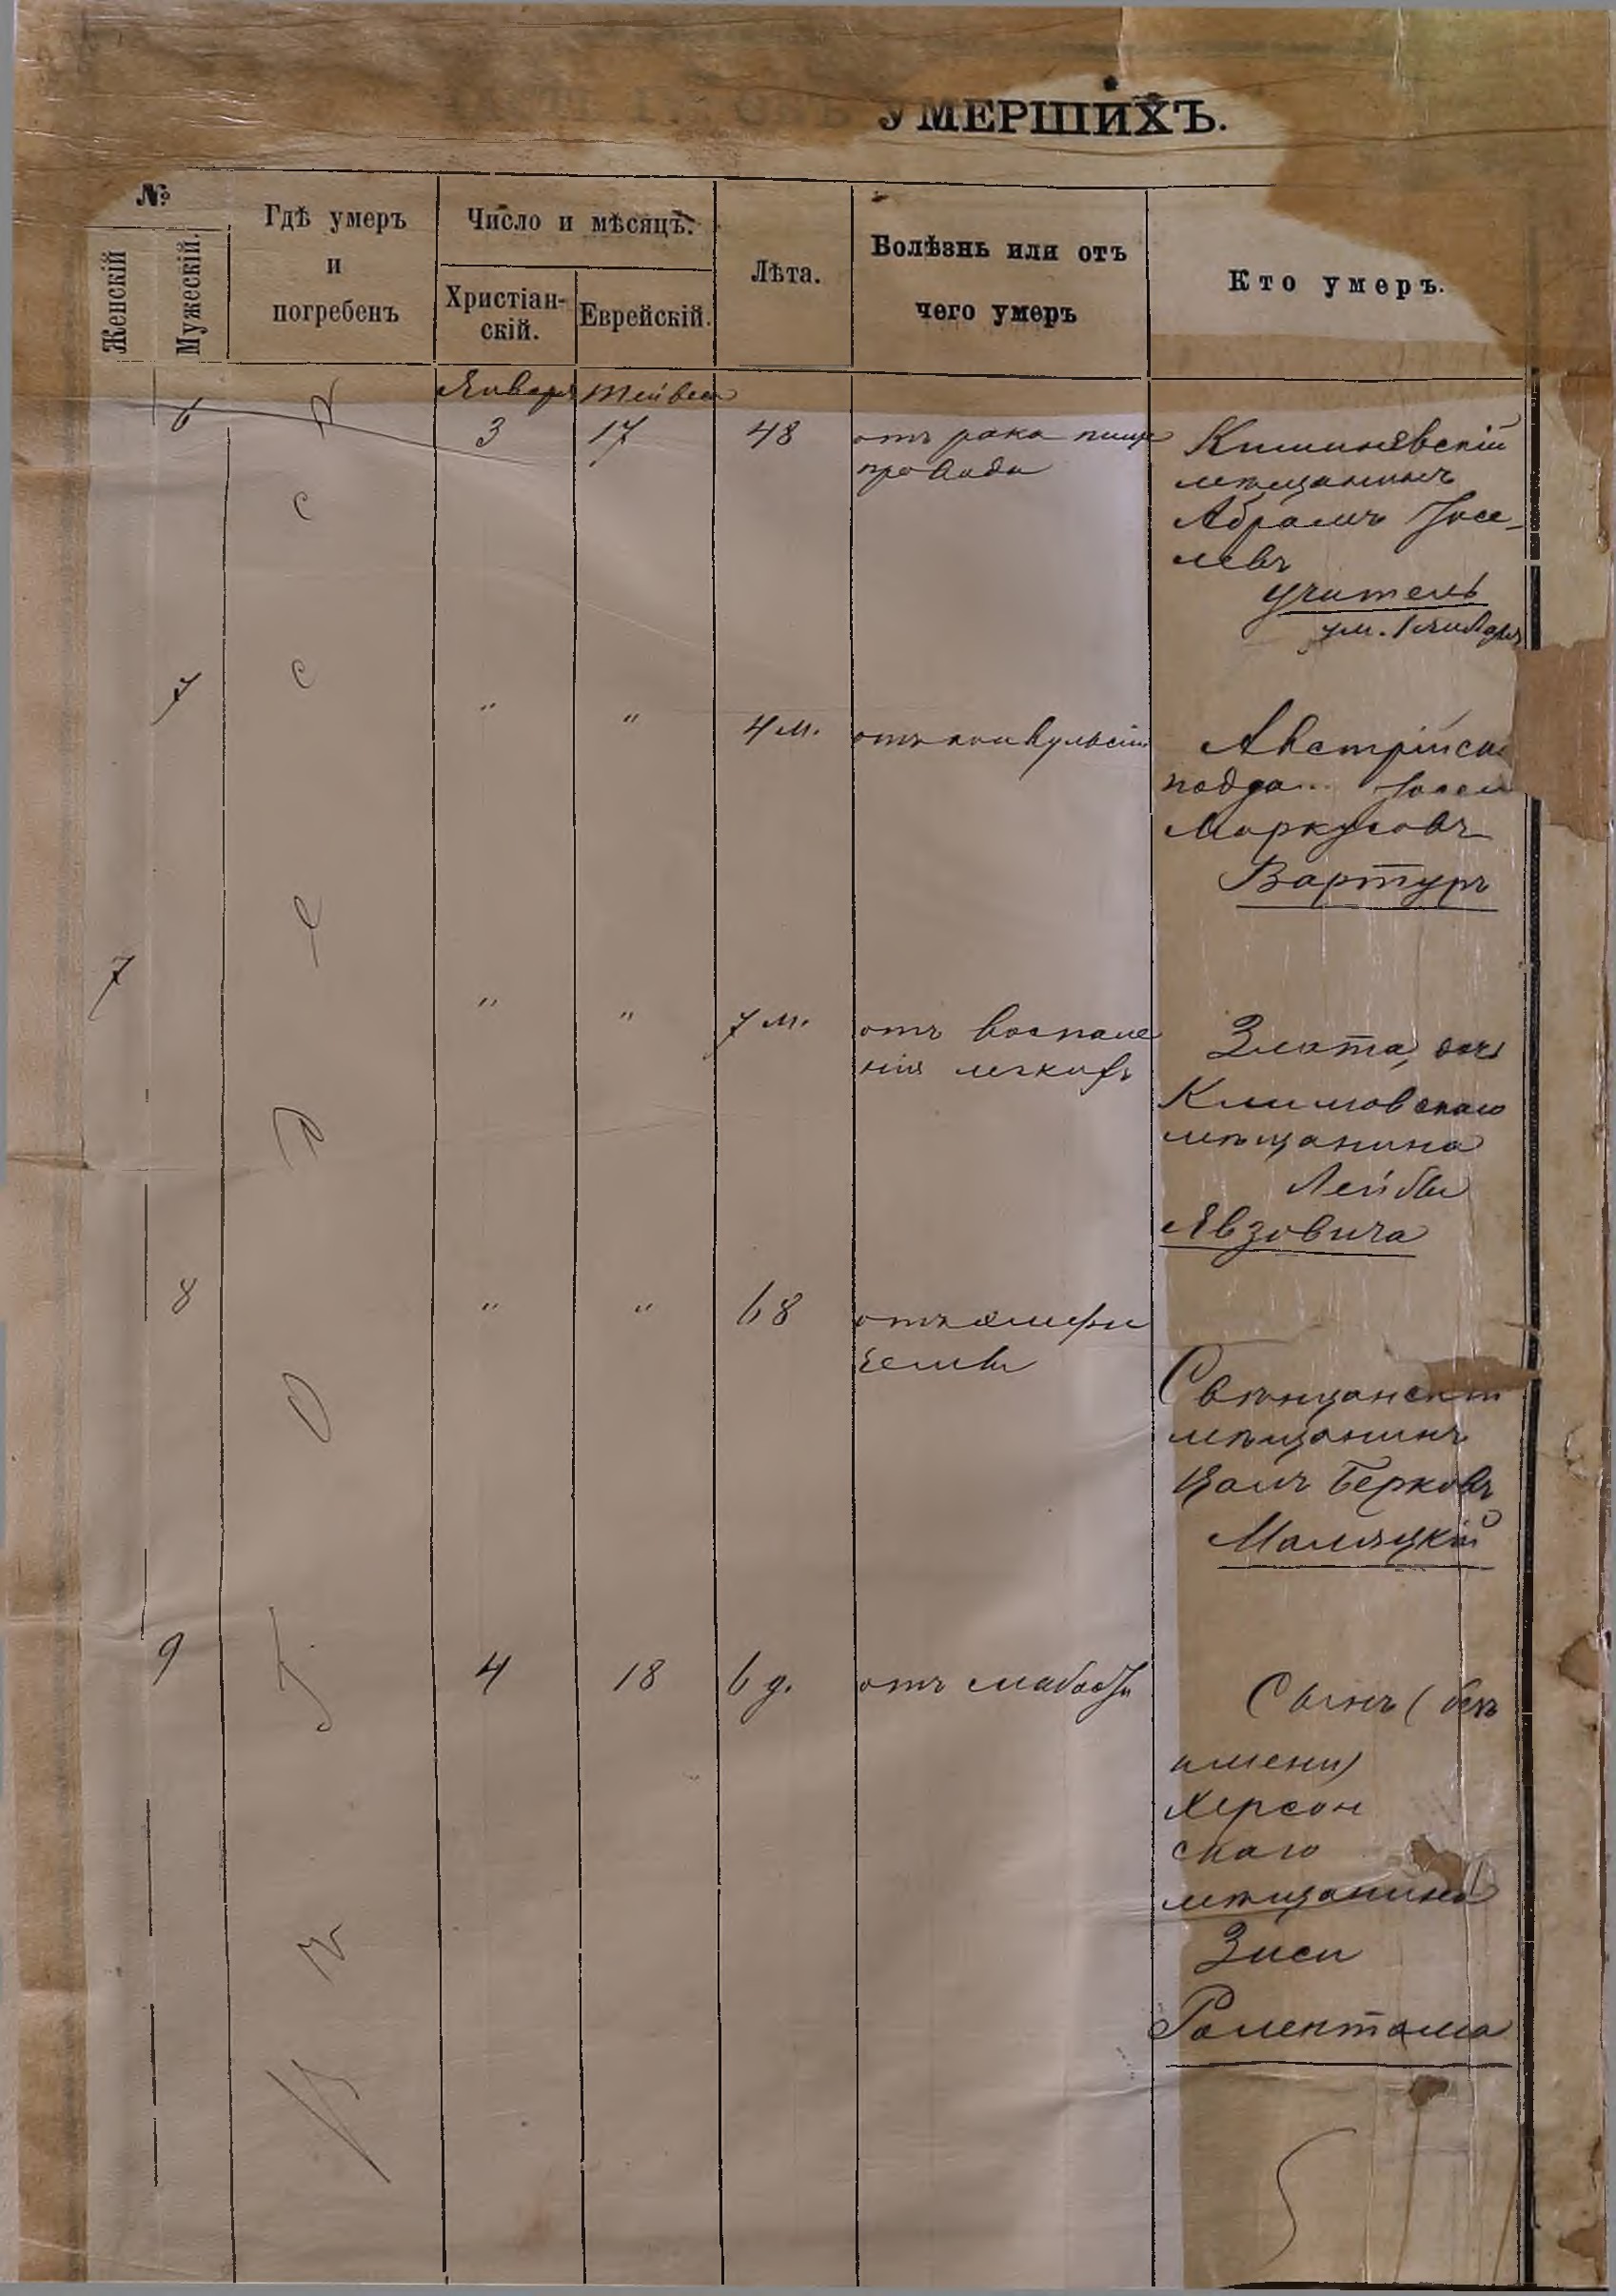 УМЕРШИХЪ.
№
Женскій
Мужескій.
Гдѣ умеръ
и
погребенъ
Число и мѣсяцъ.
Христіан-
скій.
Еврейскій.
Лѣта.
Болѣзнь или отъ
чего умеръ
Кто умеръ.
Января Тейвеса
6 3 17 48 отъ рака пище
провода
Кишиневскій
мѣщанинъ
Абрамъ Іосе-
левъ
Учитель
ум. 1 января
С
7 С " " 4 м. отъ конвульсій
Австрійск
подда... Іосел
Маркусовъ
Вартуръ
7 " " 7 м. отъ воспале
нія легкихъ
Злата, дочь
Климовскаго
мѣщанина
Лейбы
Явзовича
8 " " 68 отъ эмфи
земы
Свѣнцянскій
мѣщанинъ
Беръковъ
Маляцкій
О
9 4 18 6 д. отъ слабости
Сынъ (безъ
имени)
Херсон
скаго
мѣщанина
Зиси